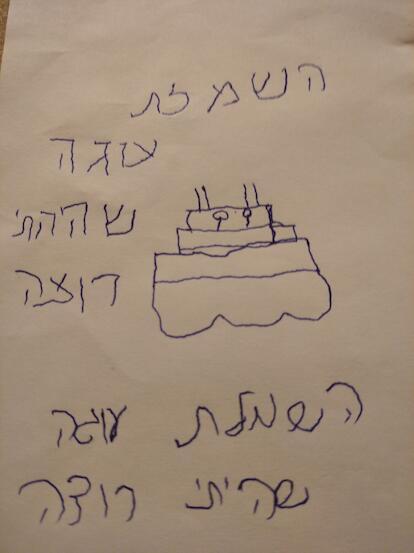 השמלת
עוגה
שהיתי
רוצה
השמלת עוגה
שהיתי רוצה